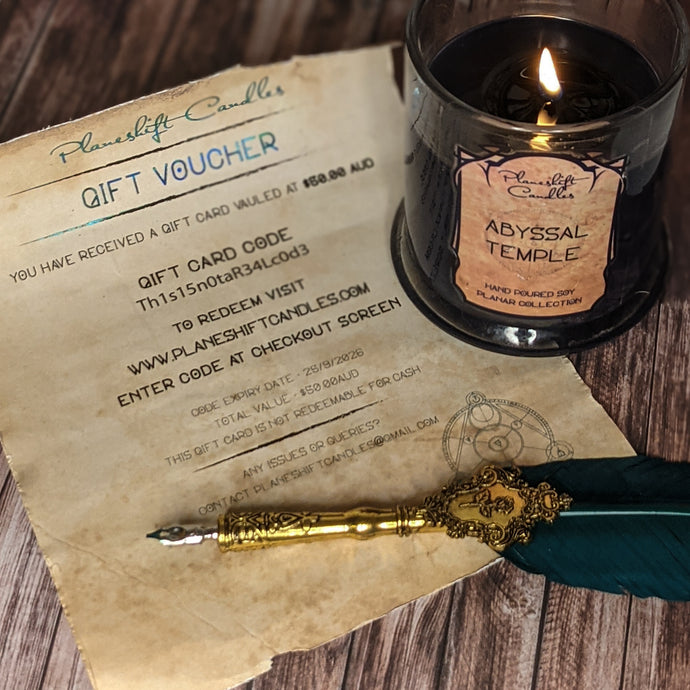 Planeshift Candles
GIFT VOUCHER
YOU HAVE RECEIVED A GIFT CARD VAULED AT $50.00 AUD
GIFT CARD CODE
Th1s15n0taR34Lc0d3
TO REDEEM VISIT
WWW.PLANESHIFTCANDLES.COM
ENTER CODE AT CHECKOUT SCREEN
CODE EXPIRY DATE - 25/9/2026
TOTAL VALUE - $50.00AUD
THIS GIFT CARD IS NOT REDEEMABLE FOR CASH
ANY ISSUES OR QUERIES?
CONTACT PLANESHIFTCANDLES@GMAIL.COM
Planeshift
Candles
ABYSSAL
TEMPLE
HAND POURED SOY
PLANAR COLLECTION